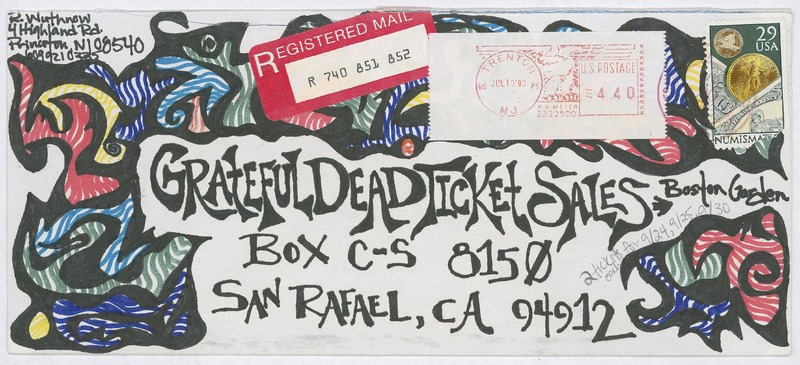 R. Wuthnow
4 Highland Rd.
Princeton, NJ 08540
REGISTERED MAIL
R 740 851 852
TRENTON
JUL 19 '93
NJ
U.S. POSTAGE
4.40
P.B. METER
3322500
29
USA
NUMISMATICS
GRATEFUL DEAD TICKET SALES → Boston Garden
BOX C-S 8150
SAN RAFAEL, CA 94912
2 tickets for 9/24, 9/25, 9/30